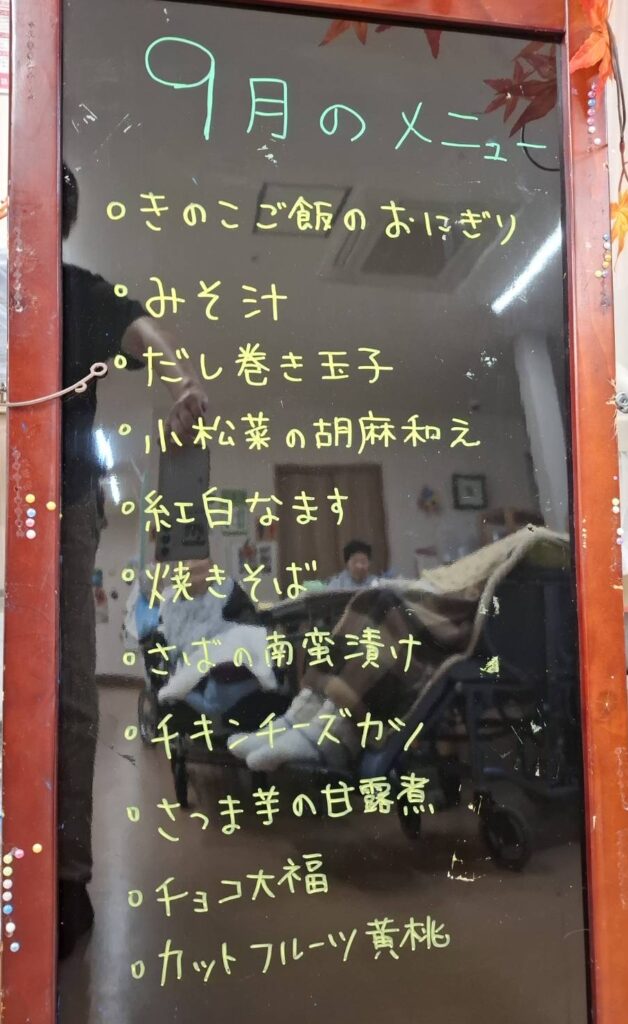 9月のメニュー
○きのこご飯のおにぎり
○みそ汁
○だし巻き玉子
○小松菜の胡麻和え
○紅白なます
○焼きそば
○さばの南蛮漬け
○チキンチーズカツ
○さつま芋の甘露煮
○チョコ大福
○カットフルーツ黄桃